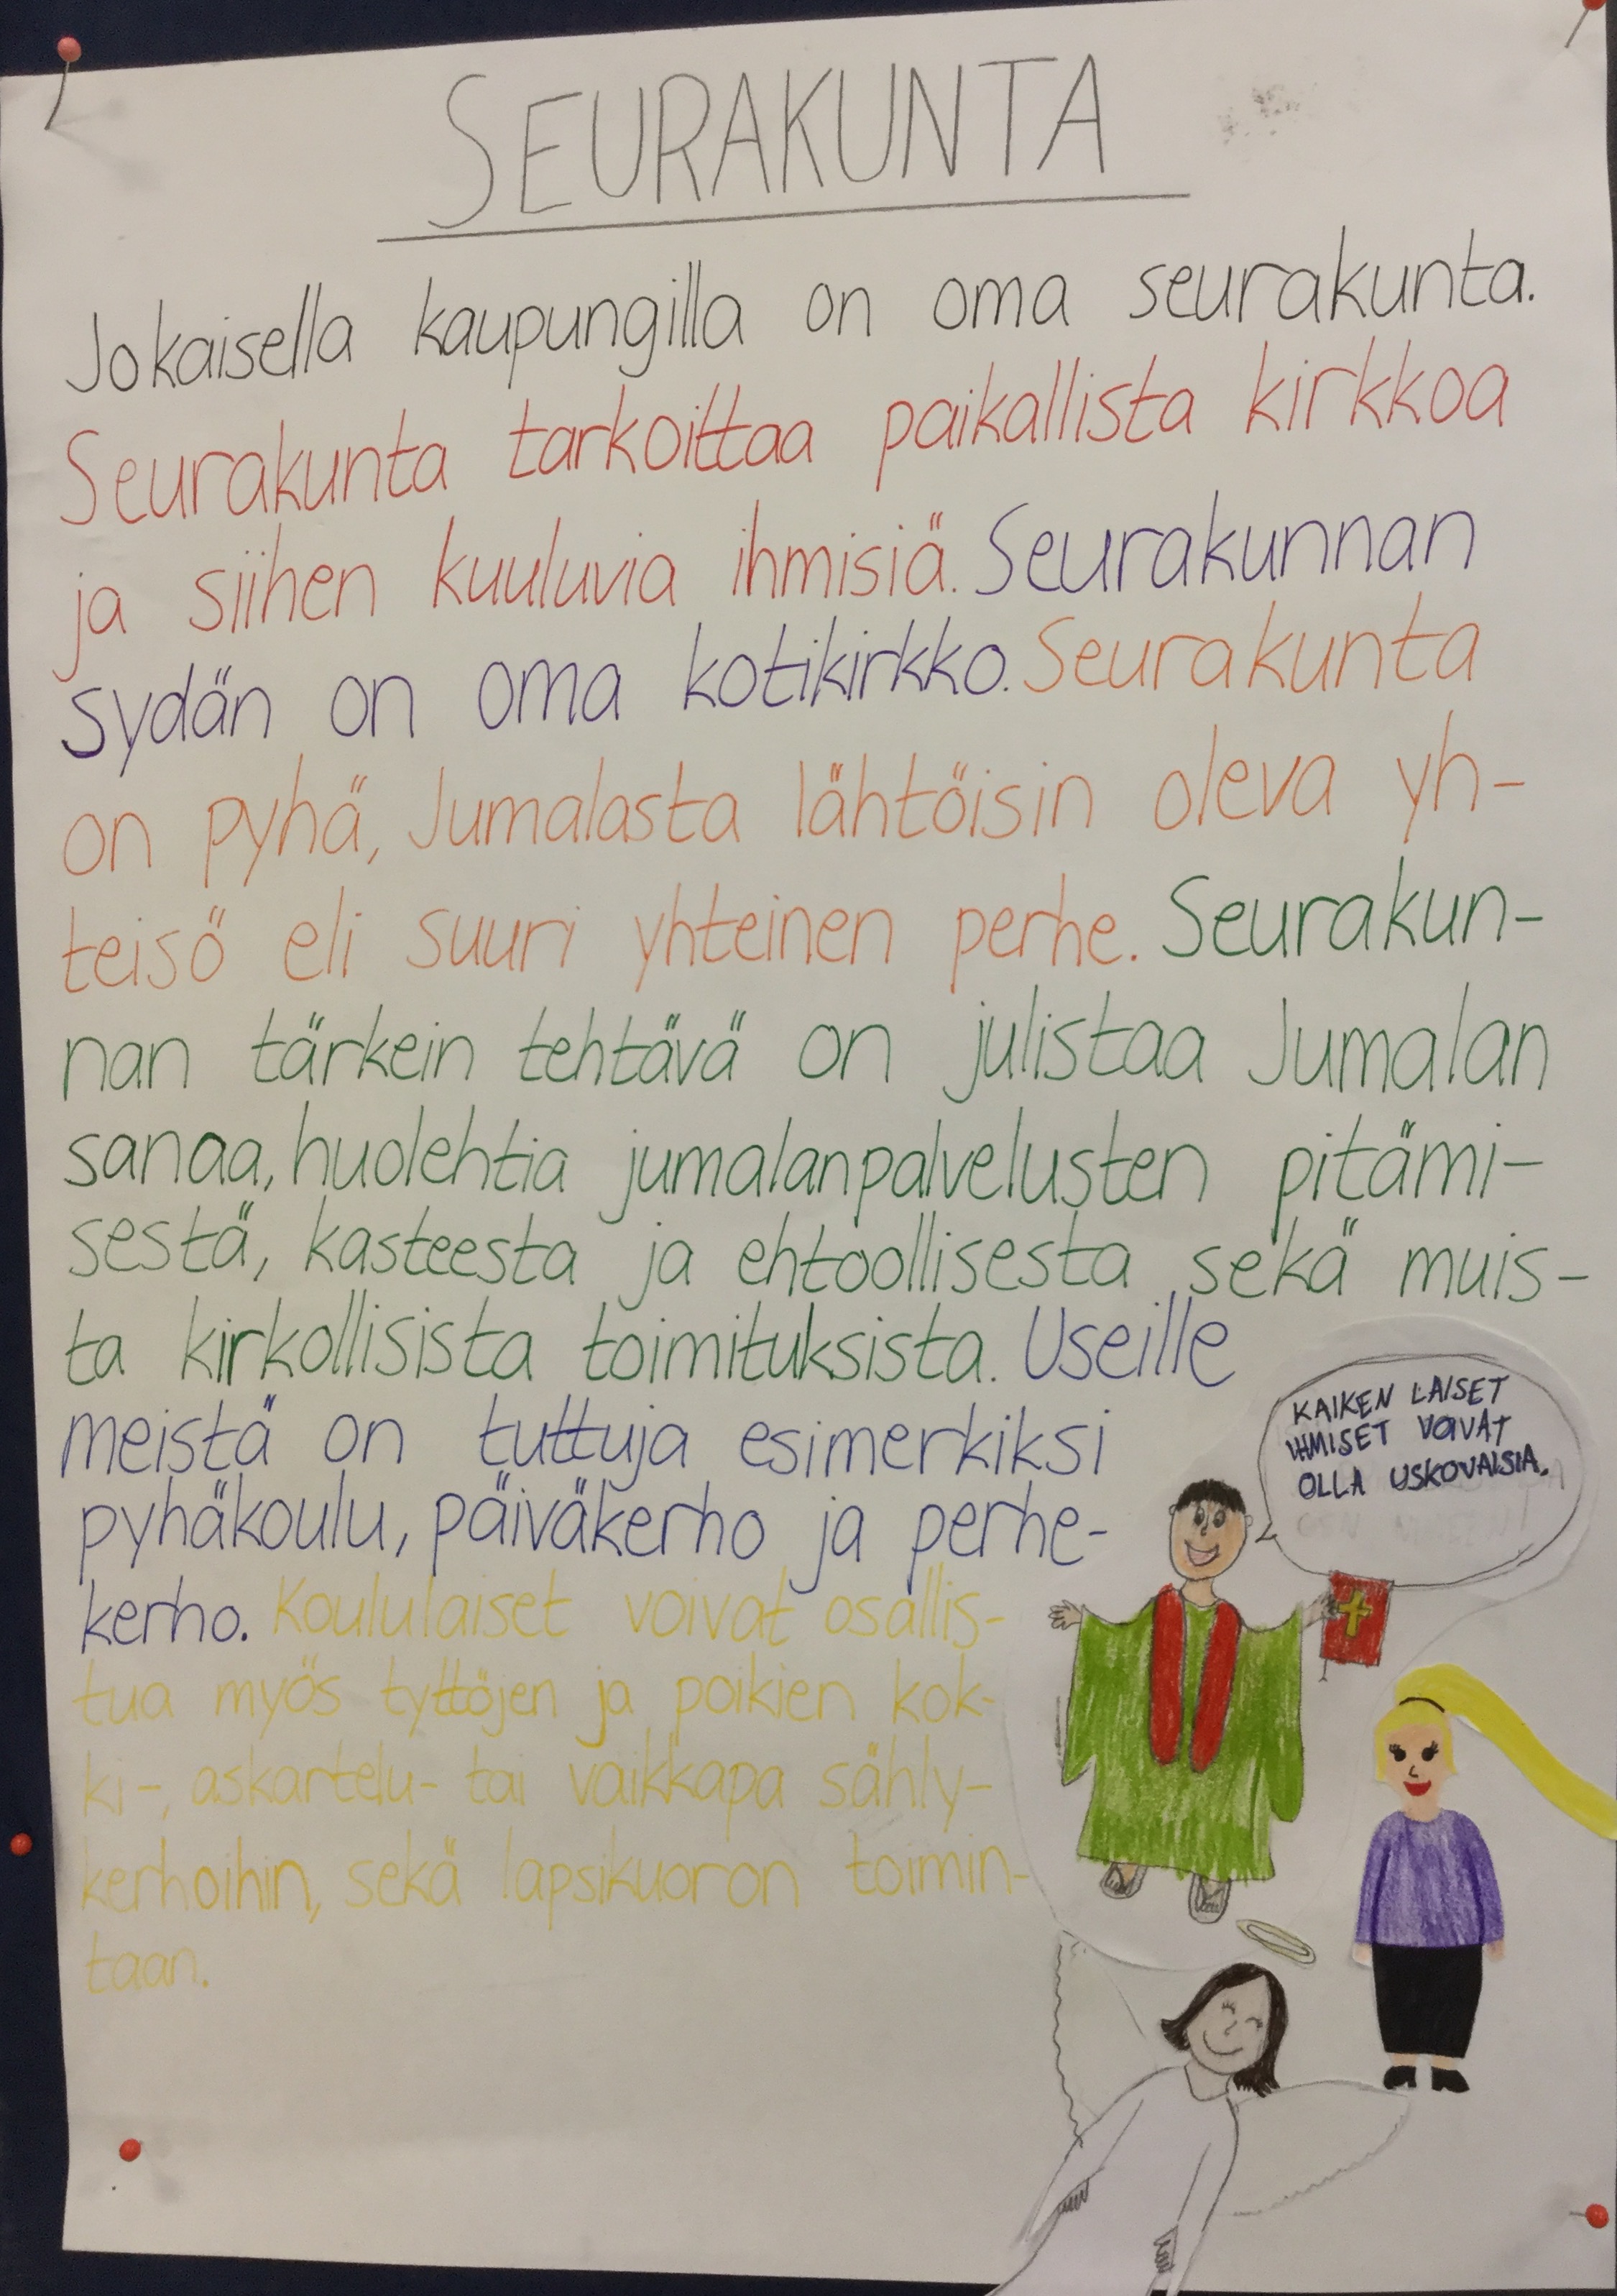 SEURAKUNTA
Jokaisella kaupungilla on oma seurakunta.
Seurakunta tarkoittaa paikallista kirkkoa
ja siihen kuuluvia ihmisiä. Seurakunnan
sydän on oma kotikirkko. Seurakunta
on pyhä, Jumalasta lähtöisin oleva yh-
teisö eli suuri yhteinen perhe. Seurakun-
nan tärkein tehtävä on julistaa Jumalan
sanaa, huolehtia jumalanpalvelusten pitämi-
sestä, kasteesta ja ehtoollisesta sekä muis-
ta kirkollisista toimituksista. Useille
meistä on tuttuja esimerkiksi
pyhäkoulu, päiväkerho ja perhe-
kerho. Koululaiset voivat osallis-
tua myös tyttöjen ja poikien kok-
ki-, askartelu- tai vaikkapa sähly-
kerhoihin, sekä lapsikuoron toimin-
taan.
KAIKEN LAISET
IHMISET VOIVAT
OLLA USKOVAISIA.